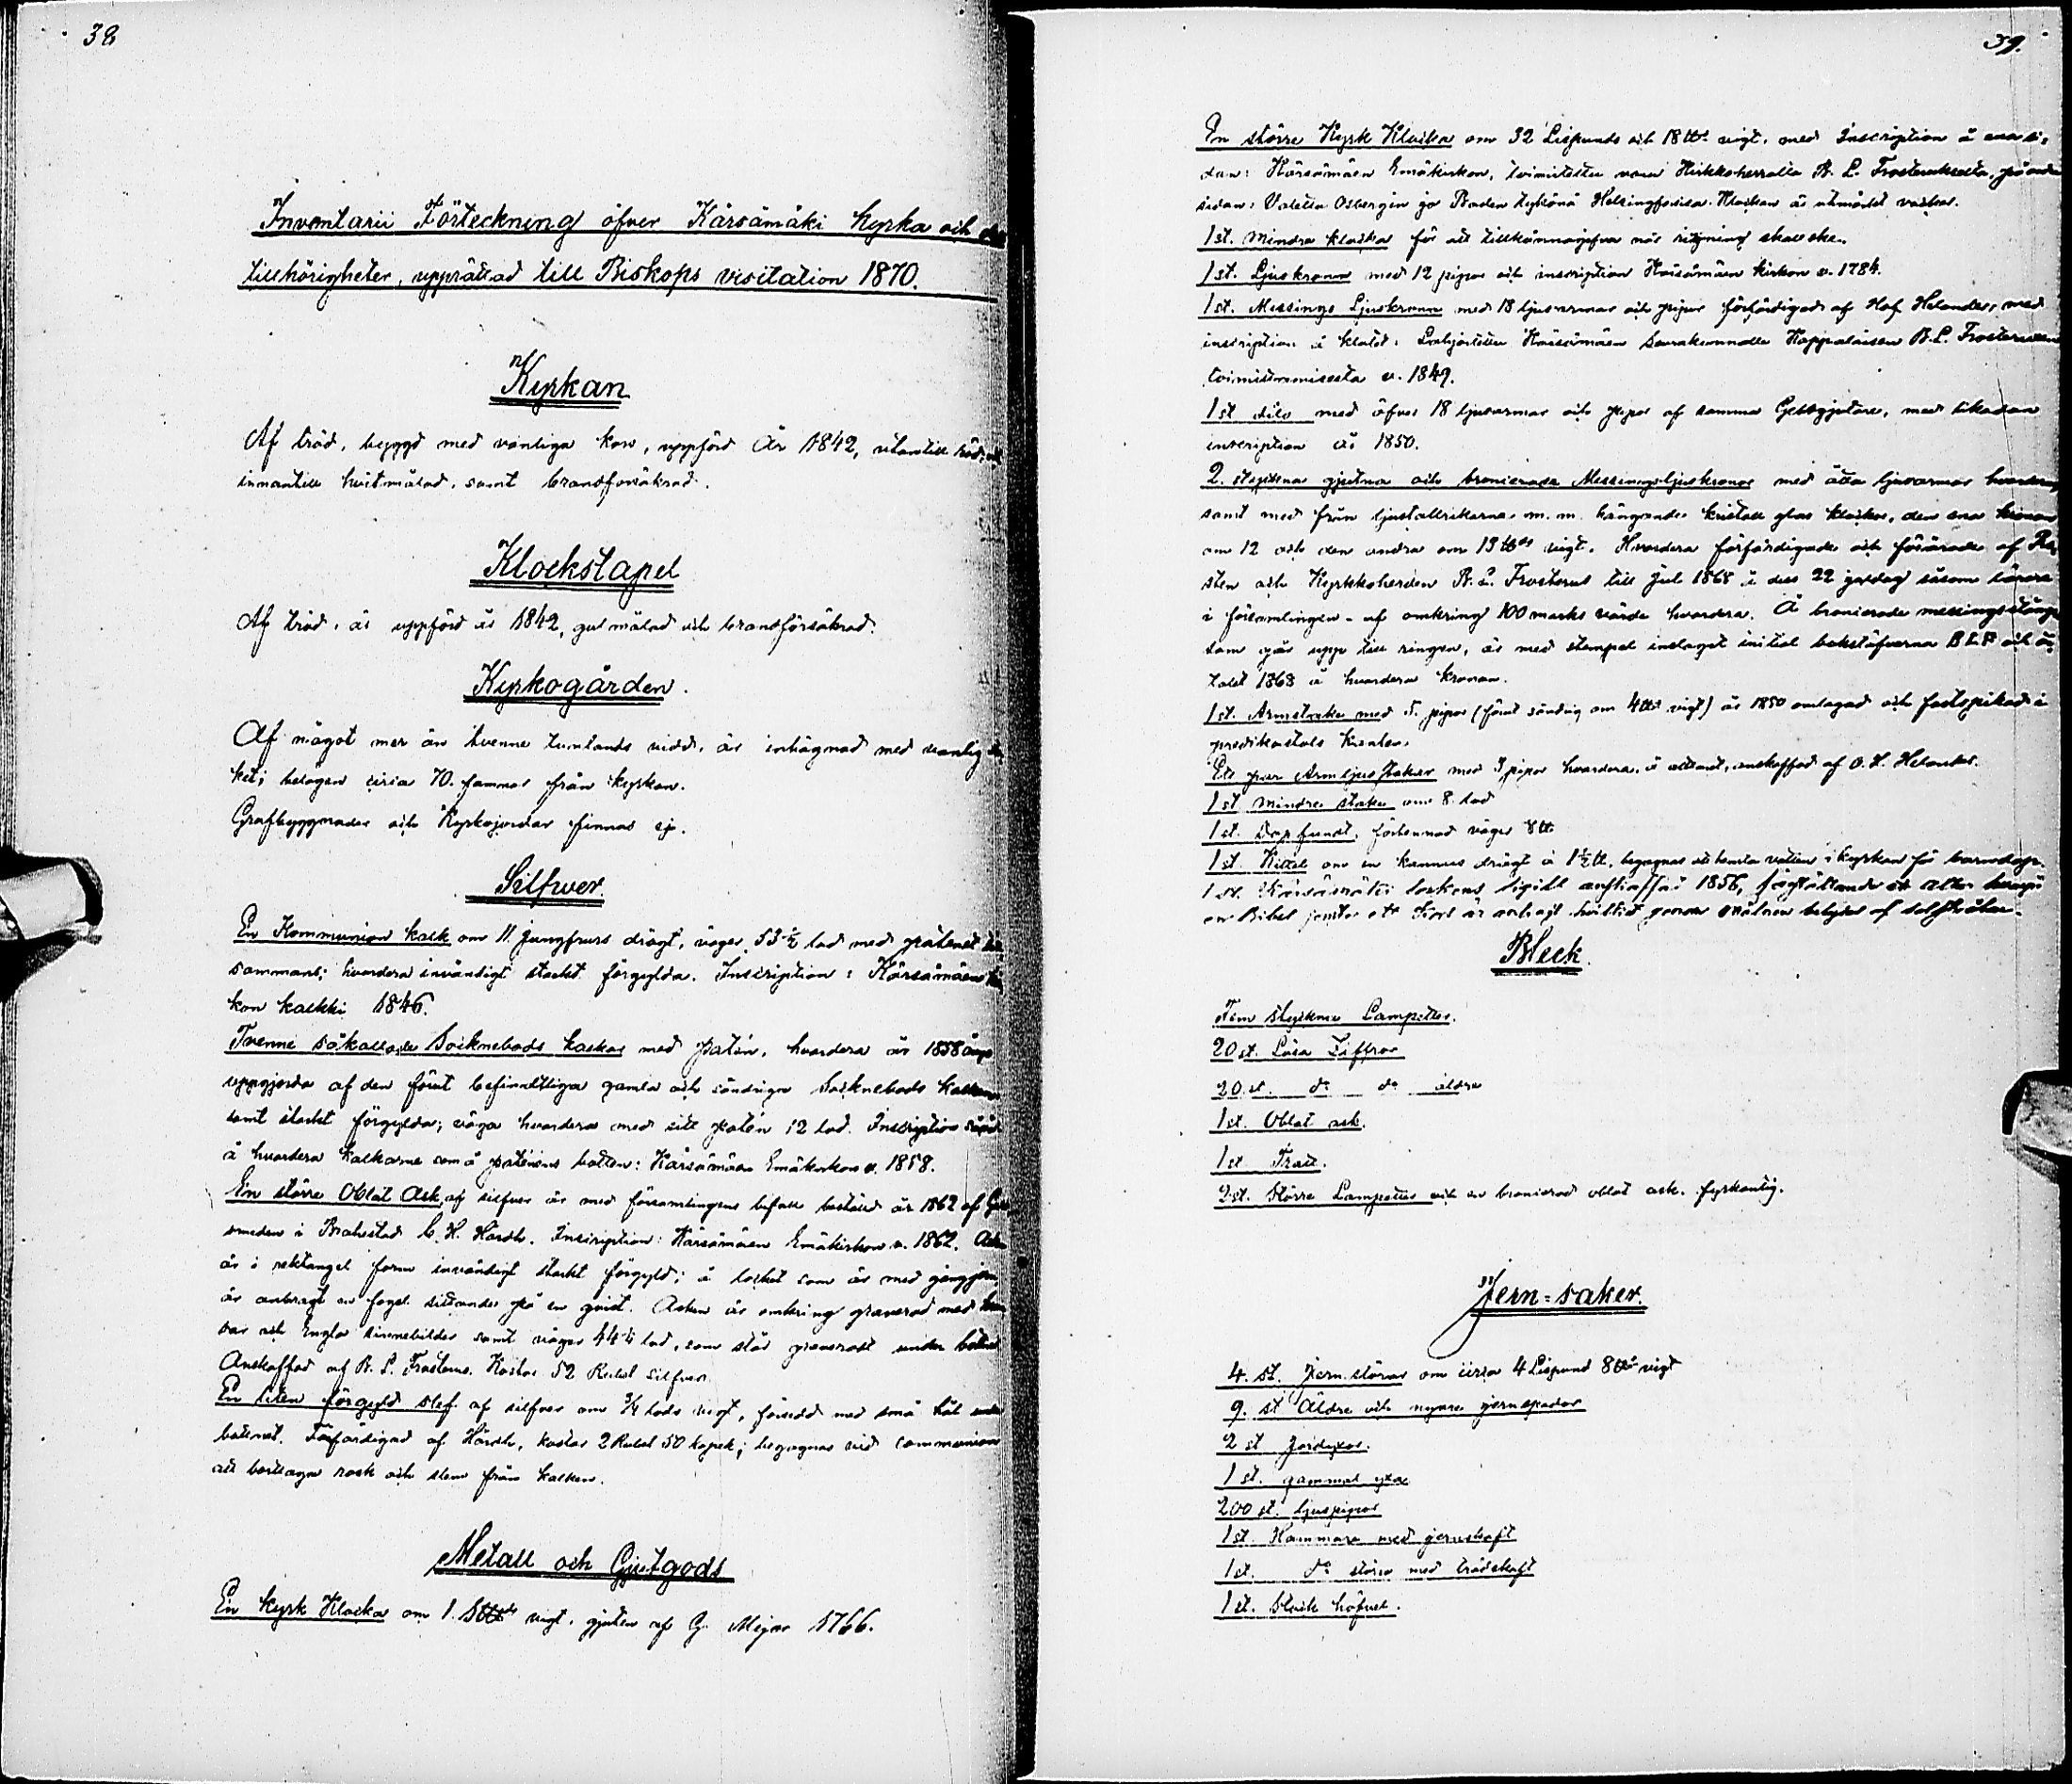 38
Inventarii Förteckning öfver Kärsämäki Kyrka och
tillhörigheter, upprättad till Biskops visitation 1870.
Kyrkan
Af träd, byggd med vanliga kors, uppförd År 1842, utantill röd,
innantill hvitmålad, samt brandförsäkrad.
Klockstapel
Af träd, är uppförd år 1842, gul målad och brandförsäkrad.
Kyrkogården.
Af något mer än tvenne tunnlands vidd, är inhägnad med vanlig
ket; belägen circa 70. famnar från kyrkan.
Grafbyggnader och Kyrkojordar finnas ej.
Silfwer.
En Kommunion kalk om 11. Jungfrurs drägt, väger 53½ lod med patenet
sammans; hvardera invändigt starkt förgylda. Inscription: Kärsämäen
kon kalkki 1846.
Tvenne såkallade Socknebods kalkar med patén, hvardera år 1858
uppgjorda af den förut befinnttliga gamla och söndriga Socknebods kalken
samt starkt förgylda; väga hvardera med sitt patén 12 lod. Inscription
å hvardera kalkarne som å paténens botten: Kärsämäen Emäkirkon v. 1858.
En större Oblat Ask af silfver är med församlingens bifall beställd år 1862 af
smeden i Brahestad C. H. Hårdh. Inscription: Kärsämäen Emäkirkon v. 1862.
är i rektangel form invändigt starkt förgyld; å locket som är med gångjern,
är anbragt en fogel sittandes på en qvist. Asken är omkring graverad med
och Engla sinnebilder samt väger 44¼ lod, som står graverat under botten
Anskaffad af B. L. Frosterus. Kostar 52 Rubel silfver.
En liten förgyld slef af silfver om ¾ lods vigt, försedd med små hål
bottnet. Förfärdigad af Hårdh, kostar 2 Rubel 50 kopek; begagnas vid Communion
att borttaga rosk och slem från kalken.
Metall och Gjutgods
En kyrk Klocka om 1. vigt, gjuten af G. Mejer 1766.
39.
En större Kyrk Klocka om 32 Lispunds och 18 vigt, med Inscription å ena si-
dan: Kärsämäen Emäkirkon, toimitettu vara Kirkkoherralta B. L. Frosterukselta, på andra
sidan: Valettu Osbergin ja Baden tykönä Helsingforsissa. Klockan är utmärkt vacker.
1 st. mindre klocka för att tillkännagifva när ringning skall ske.
1 st. Ljuskrona med 12 pipor och inscription Kärsämäen kirkon v. 1784.
1 st. Messings Ljuskrona med 18 ljusarmar och pipor förfärdigad af Olof Helander, med
inscription å klotet: Lahjoitettu Kärsämäen Seurakunnalle Kappalaisen B. L. Frosteruksen
toimittamisesta v. 1849.
1 st dito med öfver 18 ljusarmar och pipor af samma Gelbgjutare, med likadan
inscription år 1850.
2. stycken gjutna och bronserade Messingsljuskronor med åtta ljusarmar
samt med från ljustallrikarna m. m. hängande kristall glas klockor, den ena kronan
om 12 och den andra om 13 vigt. Hvardera förfärdigade och förärade af
sten och Kyrkkoherden B. L. Frosterus till Jul 1868 å dess 22 juldag såsom lärare
i församlingen - af omkring 100 marks värde hvardera. Å bronserade messingsstänger
som går upp till ringen, är med stampel inslaget initial bokstäfverna B L F och års
talet 1868 å hvardera kronan.
1 st. Armstake med 5. pipor (förut söndrig om 4 vigt) år 1850 omlagad och fastspikad i
predikostols kranten.
Ett par Armljusstakar med 3 pipor hvardera, å altaret, anskaffad af O. H. Helander.
1 st mindre stake om 8. lod
1 st. Dopfunt, förtennad väger 8
1 st. Kittel om en kannas drägt à 1½, begagnas att hemta vatten i kyrkan för barndop.
1 st. Kärsämäki sockens sigill anskaffad 1856, föreställande ett altar
en Bibel jemte ett Kors är anbragt hvilket genom strålen belyses af solstrålar.
Bleck.
Fem stycken Lampetter.
20 st. Lösa Ziffror
20 st. do do äldre
1 st. Oblat ask.
1 st. Tratt.
2 st. större Lampetter och en bronserad oblat ask. fyrkantig.
Jern-saker.
4. st. Jern störar om circa 4 Lispund 8 vigt
9. st Äldre och nyare jernspador
2 st Jordyxor.
1 st. gammal yxa
200 st. ljuspipor
1 st. Hammare med jernskaft
1 st. do större med trädskaft
1 st. Stock höfvel.